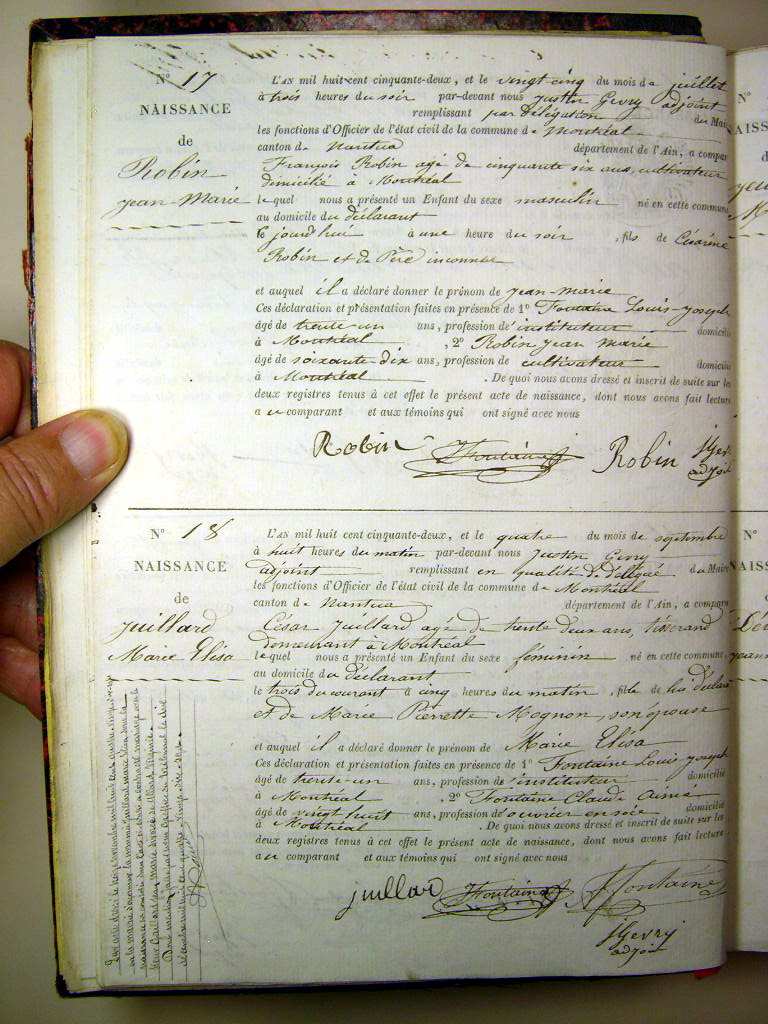 N° 17
NAISSANCE
de
Robin
Jean-Marie
L'AN mil huit cent cinquante-deux, et le vingt cinq du mois de juillet
à trois heures du soir par-devant nous Justin Gevry adjoint
remplissant par délégation du Mai
les fonctions d'Officier de l'état civil de la commune de Montréal
canton de Nantua département de l'Ain, a compar
François Robin agé de cinquante six ans, cultivateur
domicilié à Montréal
lequel nous a présenté un Enfant du sexe masculin né en cette commune
au domicile du déclarant
le jourd'hui à une heure du soir, fils de Césarine
Robin et de Père inconnu
et auquel il a déclaré donner le prénom de Jean-Marie
Ces déclaration et présentation faites en présence de 1° Fontaine Louis-Joseph
âgé de trente-un ans, profession d'instituteur domicilié
à Montréal , 2° Robin Jean Marie
âgé de soixante dix ans, profession de cultivateur domicilié
à Montréal . De quoi nous avons dressé et inscrit de suite sur les
deux registres tenus à cet effet le présent acte de naissance, dont nous avons fait lecture
au comparant et aux témoins qui ont signé avec nous
Robin Fontaine Robin JGevry
adjoit
N° 18
NAISSANCE
de
Juillard
Marie Elisa
L'AN mil huit cent cinquante-deux, et le quatre du mois de septembre
à huit heures du matin par-devant nous Justin Gevry
adjoint remplissant en qualité de délégué du Maire
les fonctions d'Officier de l'état civil de la commune de Montréal
canton de Nantua département de l'Ain, a comparu
César Juillard agé de trente deux ans, tisserand
demeurant à Montréal
lequel nous a présenté un Enfant du sexe féminin né en cette commune,
au domicile du déclarant
le trois du courant à cinq heures du matin, fille de lui déclarant
et de Marie Pierrette Mognon, son épouse
et auquel il a déclaré donner le prénom de Marie Elisa
Ces déclaration et présentation faites en présence de 1° Fontaine Louis-Joseph
âgé de trente-un ans, profession d'instituteur domicilié
à Montréal , 2° Fontaine Claude Aimé
âgé de vingt huit ans, profession d'ouvrier en soie domicilié
à Montréal . De quoi nous avons dressé et inscrit de suite sur les
deux registres tenus à cet effet le présent acte de naissance, dont nous avons fait lecture
au comparant et aux témoins qui ont signé avec nous
juillard Fontaine Fontaine
JGevry
adjoit